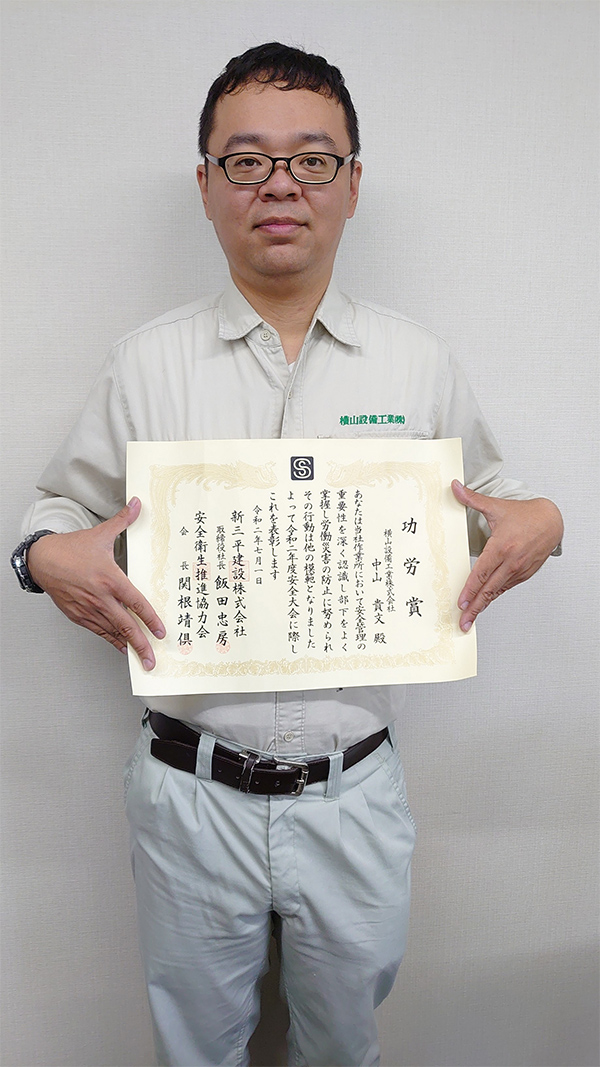 横山設備工業㈱
S
功労賞
横山設備工業株式会社
中山貴文殿
あなたは当社作業所において安全管理の
重要性を深く認識し部下をよく
掌握し労働災害の防止に努められ
その行動は他の模範となりました
よって令和二年度安全大会に際し
これを表彰します
令和二年七月一日
新三平建設株式会社
取締役社長 飯田忠房
安全衛生推進協力会
会長 関根靖倶